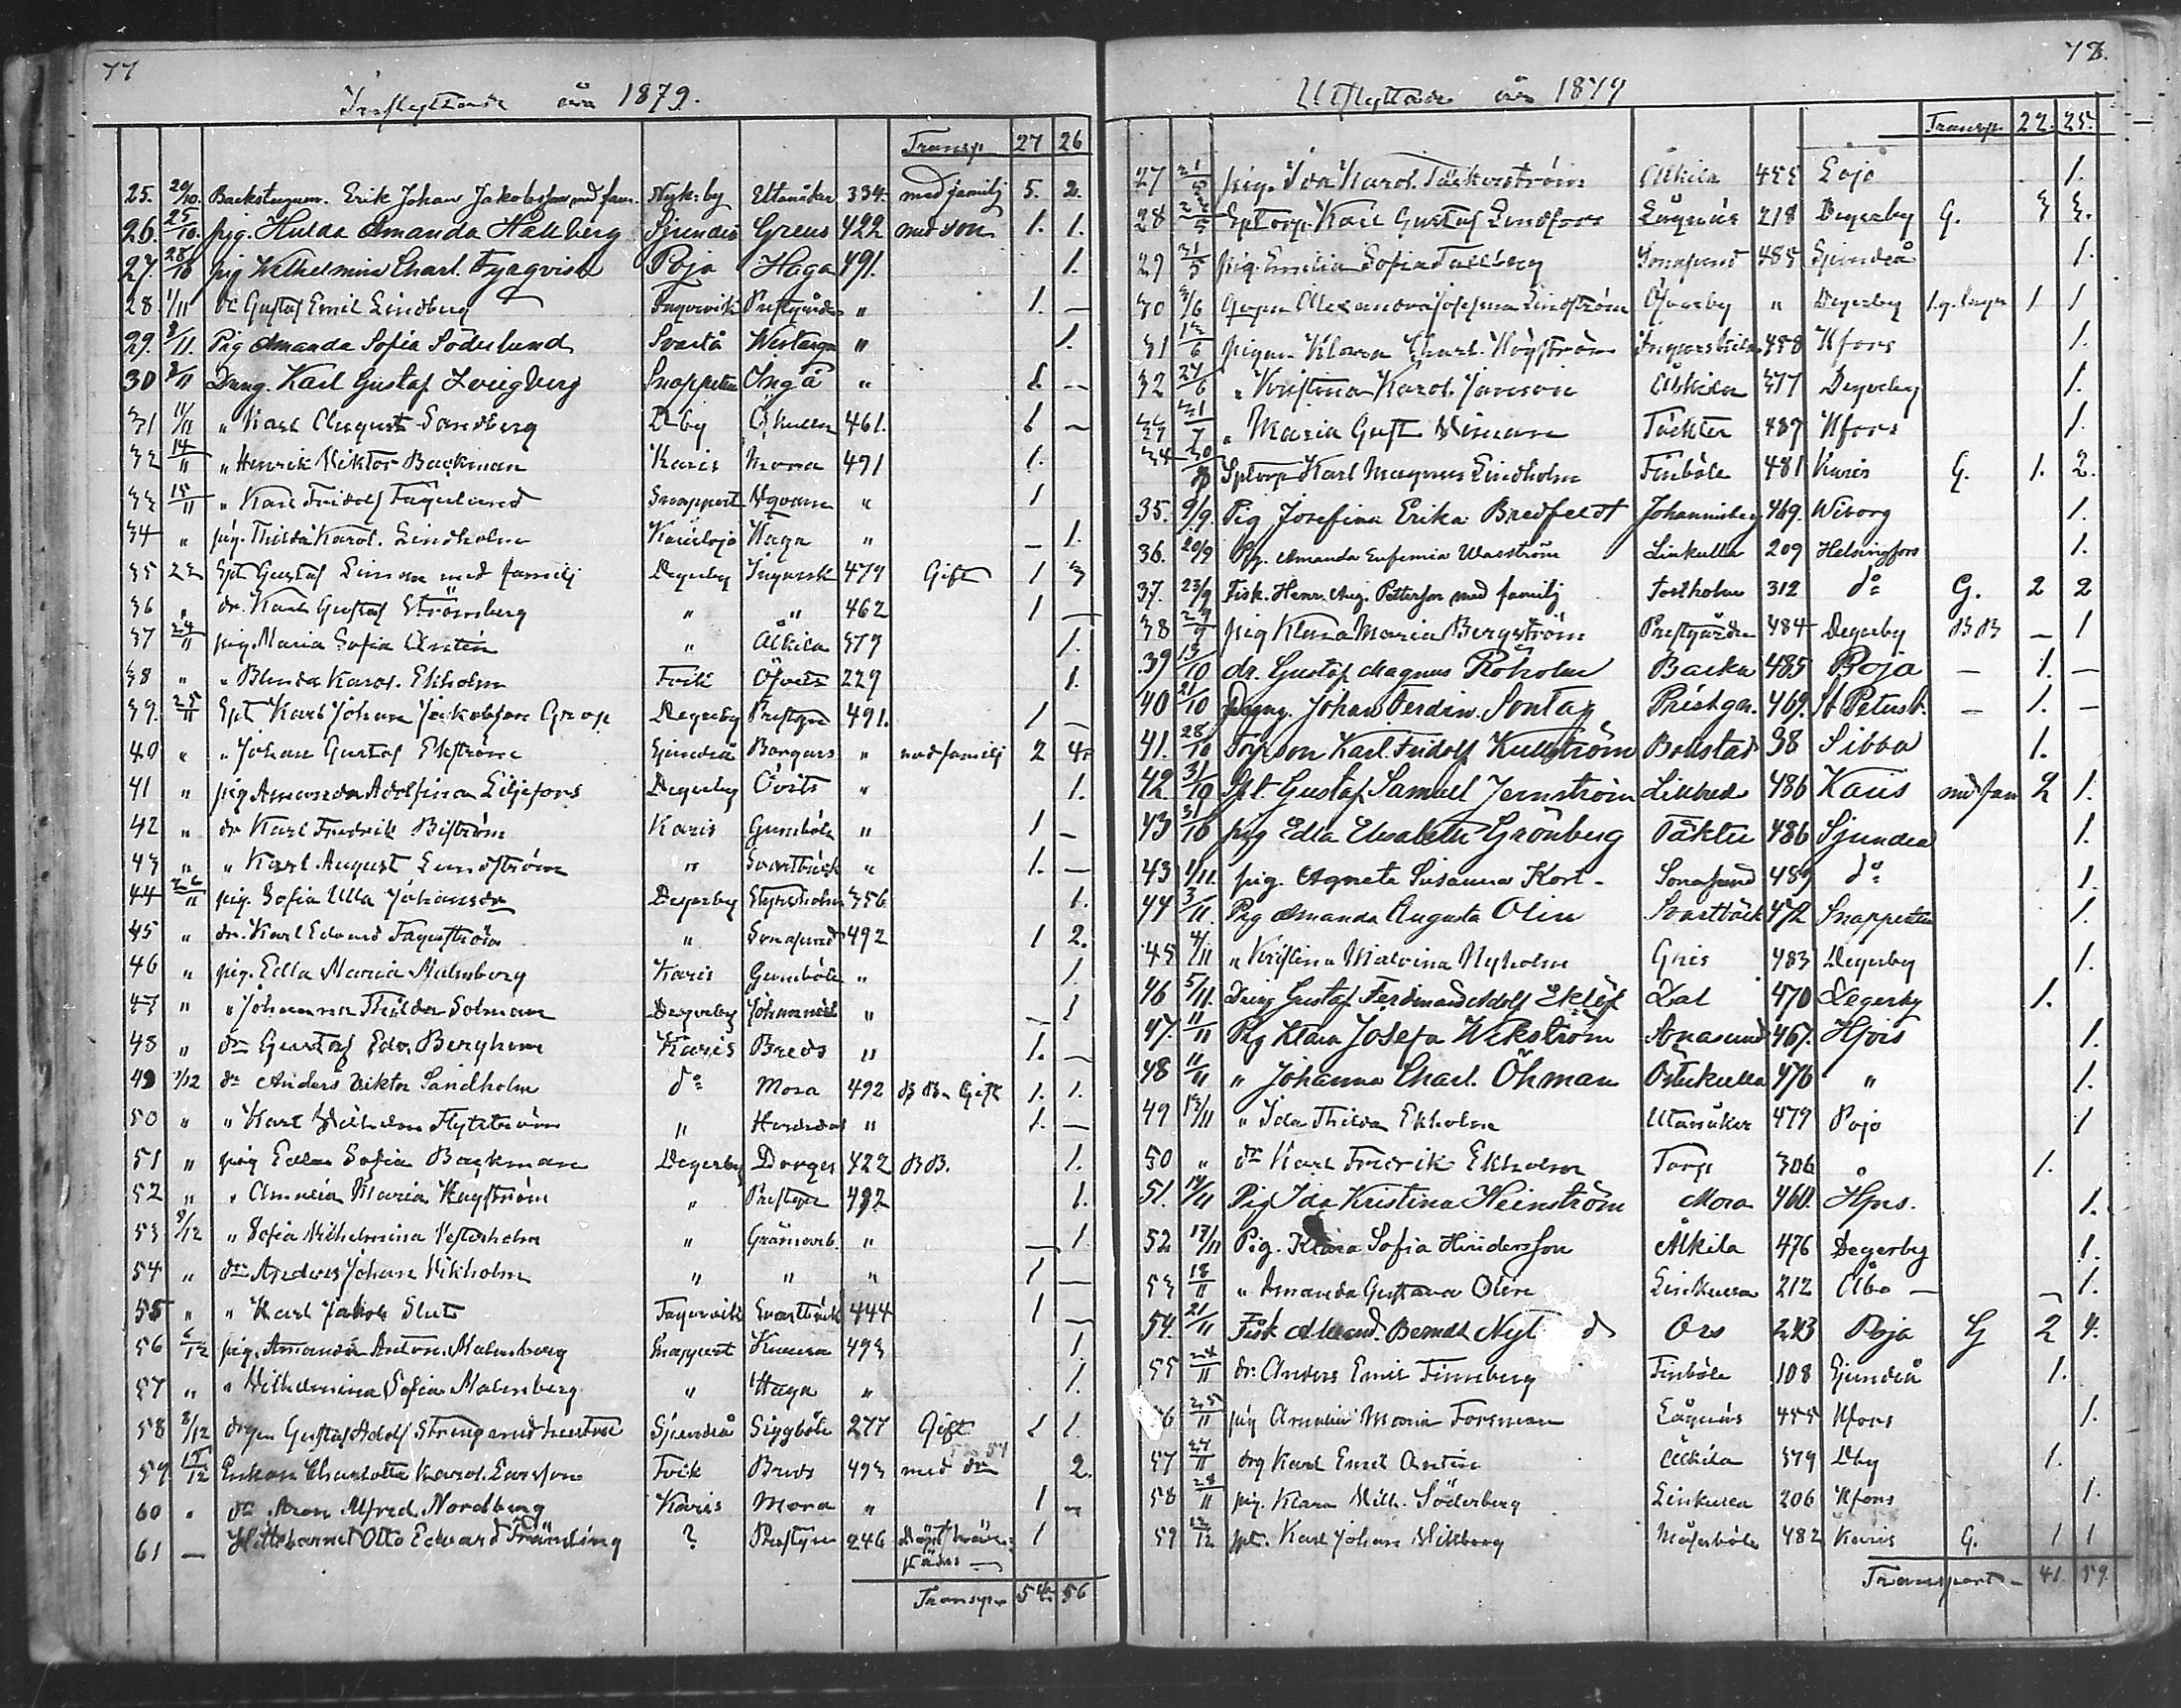 77
Inflyttade år 1879.
Transp. 27 26
25. 20/10. Backstugum. Erik Johan Jakobsson med fam. Nyk:by Uttanåker 334. med familj 5. 2.
26. 25/10. pig. Hulda Amanda Hallberg Sjundeå Greus 422 med son 1. 1.
27. 28/10 pig Wilhelmina Charl. Fyrqvist Pojo Haga 491. 1.
28. 1/11 dr Gustaf Emil Lindberg Fagervik Prestgården " 1. —
29. 8/11. Pig Amanda Sofia Söderlund Svartå Westergn " 1.
30 9/11 Dräng. Karl Gustaf Zveigberg Snappertu Ingå " 1. —
31 11/11 " Karl August Sandberg D.by Ö.kulla 461. 1 —
32 14/11 " Henrik Viktor Backman Karis Mora 491 1.
33 15/11 " Karl Fridolf Fagerlund Snappert " 1
34 " pig. Thilda Karol. Lindholm Karislojo Haga " — 1.
35 22 Spt Gustaf Liman med familj Degerby Ingarsk 479 Gift 1 3
36 " dr. Karl Gustaf Strömberg " " 462 1 —
37 24/11 pig. Maria Sofia Antin " Älkila 379 1.
38 " " Blenda Karol. Ekholm Fvik Öfvits 229 1.
39. 25/11 Spt Karl Johan Jakobsson Grop Degerby Prestgn 491. 1 —
40 " " Johan Gustaf Ekström Sjundeå Borgars " med familj 2 4.
41 " pig Amanda Adolfina Liljefors Degerby Övits " 1.
42 " dr Karl Fredrik Biström Karis Gumböle " 1 —
43 " " Karl August Lundström " Svartbäck " 1. —
44 26/11 pig. Sofia Ulla Johansdr Degerby 356 1.
45 " dr. Karl Edvard Fagerström " Sonasund 492 1 2.
46 " pig. Edla Maria Malmberg Karis Gumböle " 1.
47 " " Johanna Thilda Solman Degerby Johannisb " — 1
48 " dr Gustaf Edv. Berghem Karis Breds " 1. —
49 1/12 dr Anders Viktor Sandholm do Mora 492 BB. Gift 1. 1.
50 " " Karl Wilhelm Flytström " " 1. —
51 " pig Edla Sofia Backman Degerby Dorges 422 BB. 1.
52 " " Amalia Maria Hagström " Prestgn 492 1.
53 3/12 " Sofia Wilhelmina Vesterholm " " — 1.
54 " dr Anders Johan Vikholm " " " 1 —
55 " " Karl Jakob Slut Fagervik Svartbäck 444 1 —
56 6/12 pig. Amanda Anton. Malmberg Snappert Kumra 493 1
57 " " Vilhelmina Sofia Malmberg " Haga " 1.
58 8/12 drgn Gustaf Adolf Streng med hustru Sjundeå Siggböle 277 Gift 1 1.
59 15/12 Enkan Charlotta Karol. Larsson Fvik Breds 493 med dr 2.
60 " dr Aron Alfred Nordberg Karis Mora " 1 —
61 — Hittebarnet Otto Edvard Främling ? Prestgn 246 1
Transp. 54 56
78.
Utflyttade år 1879
Transp. 22. 25.
27 21/5 pig. Ida Karol. Täckerström Älkila 455 Lojo 1.
28 Sptorp. Karl Gustaf Lindfors Lågnäs 218 Degerby G. 3 3.
29 31/5 pig. Emilia Sofia Tallberg Sonasund 485 Sjundeå 1.
30 3/6 Alexandra Josefina Lindström Öfverby " Degerby 1 1
31 13/6 pigan Klara Charl. Högström Ingarskila 458 Hfors 1.
32 27/6 " Kristina Karol. Janson Älkila 377 Degerby 1.
33 21/7 " Maria Gust. Niman Täckter 489 Hfors 1.
34 30/8 Sptorp Karl Magnus Lindholm Finböle 481 Karis G. 1. 2.
35. 9/9. Pig Josefina Erika Bredfeldt Johannisberg 469. Wiborg 1.
36. 20/9 Pg. Amanda Eufemia Wasström Linkulla 209 Helsingfors 1.
37. 23/9 Fisk. Henr. Aug. Pettersson med familj Forsholm 312 do G. 2 2
38 29/9 pig Klara Maria Bergström Prestgården 484 Degerby BB — 1
39 13/10 dr. Gustaf Magnus Roholm Backa 485 Pojo — 1. —
40 21/10 Dreng. Johan Ferdin. Sontag Prästgn. 469. St Petersb. — 1. —
41. 28/10 Torpson Karl Fridolf Kullström Bollstad 38 Sibbo 1.
42. 31/10 Spt. Gustaf Samuel Jernström Lillbred 486 Karis med fam 2 1.
43 31/10 pig Edla Elisabeth Grönberg Täkter 486 Sjundeå 1.
43 1/11. pig. Agneta Susanna Kort - Sonasund 489 do 1.
44 3/11. Pig Amanda Augusta Olin Svartbäck 472 Snappertu 1.
45 4/11 " Kristina Malvina Nyholm Gries 483 Degerby 1.
46 5/11. Dräng Gustaf Ferdinand Adolf Eklöf Dal 470 Degerby 1.
47. 11/11 Pig Klara Josefa Wikström Sonasund 467. Hfors 1.
48 11/11 " Johanna Charl. Öhman Österkulla 476 " 1.
49 13/11 " Ida Thilda Ekholm Utanåker 479 Pojo 1
50 " dr Karl Fredrik Ekholm Torp 306 " 1.
51. 14/11 Pig Ida Kristina Heinström Mora 460. Hfors. 1.
52 17/11 Pig. Klara Sofia Hindersson Älkila 476 Degerby 1.
53 18/11 " Amanda Gustava Olin Linkulla 212 Åbo — — 1.
54. 21/11 Fisk Alexand. Berndt Nyl d Ors 243 Pojo G 2 4.
55 24/11 dr. Anders Emil Finnberg Finböle 108 Sjundeå 1.
6 25/11 pig Amalia Maria Forsman Lågnäs 455 Hfors 1.
57 27/11 drg Karl Emil Antin Älkila 379 Dby 1.
58 28/11 pig. Klara Vilh. Söderberg Linkulla 206 Hfors 1.
59 12/12 spt. Karl Johan Vikberg Måsaböle 482 Karis G. 1 1
Transport - 41. 59.